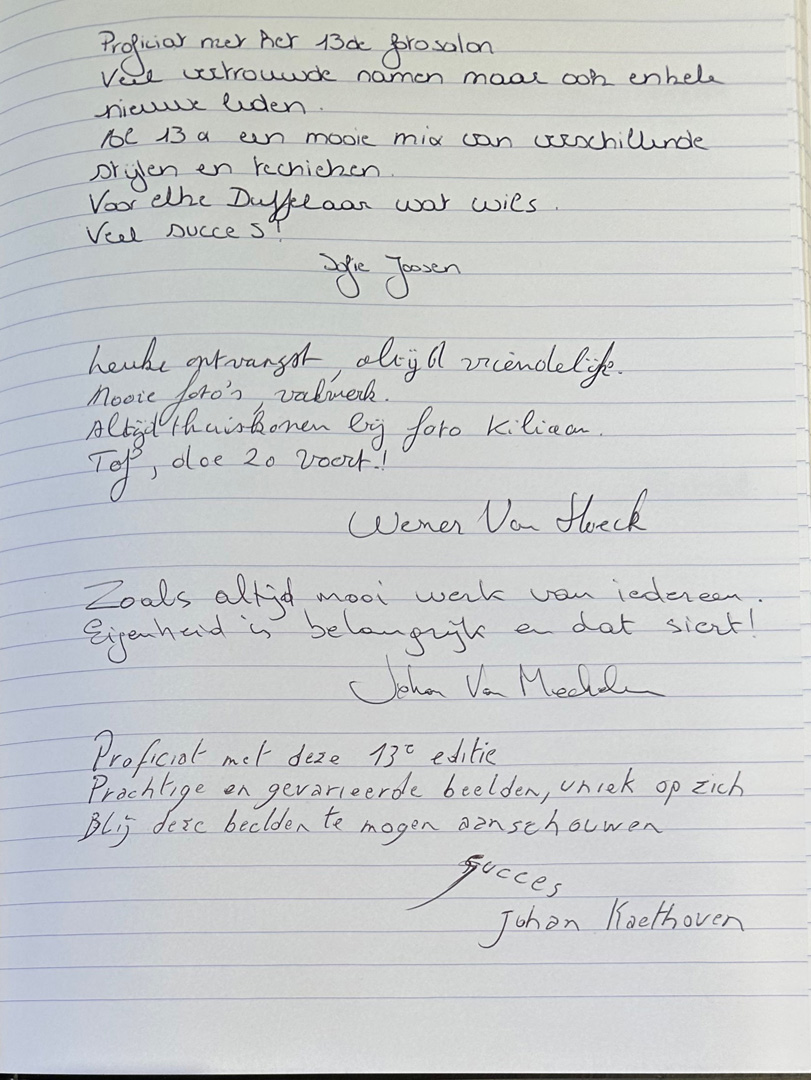 Proficiat met het 13de fotosalon
Veel vertrouwde namen maar ook enkele
nieuwe leden.
De 13 a een mooie mix van verschillende
stijlen en technieken.
Voor elke Duffelaar wat wils.
Veel succes!
Sofie Joosen
Leuke ontvangst, altijd vriendelijk.
Mooie foto's, vakwerk.
Altijd thuiskomen bij foto Kiliaan.
Tof, doe zo voort!
Werner Van Hoeck
Zoals altijd mooi werk van iedereen.
Eigenheid is belangrijk en dat siert!
Johan Van Mechelen
Proficiat met deze 13e editie
Prachtige en gevarieerde beelden, uniek op zich
Blij deze beelden te mogen aanschouwen
Succes
Johan Kaethoven